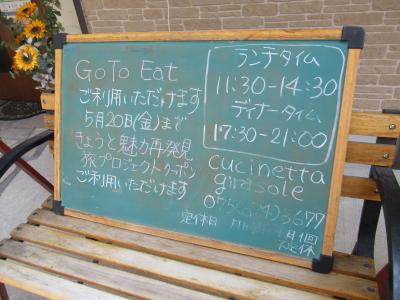 Go To Eat
ご利用いただけます
5月20日(金)まで
きょうと魅力再発見
旅プロジェクトクーポン
ご利用いただけます
ランチタイム
11:30-14:30
ディナータイム
17:30-21:00
cucinetta
girasole
定休日
月1回
不定休